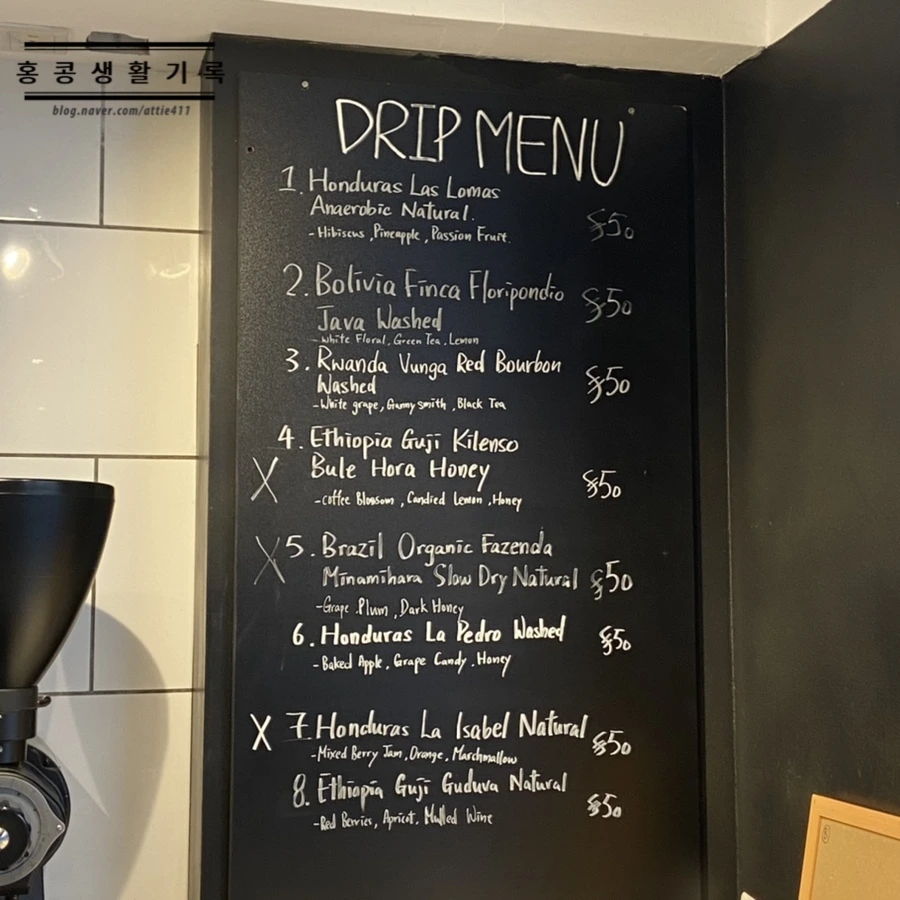 홍콩생활기록
blog.naver.com/attie411
DRIP MENU
1. Honduras Las Lomas
Anaerobic Natural.
- Hibiscus, Pineapple, Passion Fruit. $50
2. Bolivia Finca Floripondio
Java Washed $50
- White Floral, Green Tea, Lemon
3. Rwanda Vunga Red Bourbon
Washed $50
- White grape, Granny smith, Black Tea
4. Ethiopia Guji Kilenso
X Bule Hora Honey
- coffee Blossom, Candied Lemon, Honey $50
X 5. Brazil Organic Fazenda
Minamihara Slow Dry Natural $50
- Grape. Plum, Dark Honey
6. Honduras La Pedro Washed $50
- Baked Apple, Grape Candy, Honey
X 7. Honduras La Isabel Natural $50
- Mixed Berry Jam, Orange, Marshmallow
8. Ethiopia Guji Guduva Natural $50
- Red Berries, Apricot, Mulled Wine